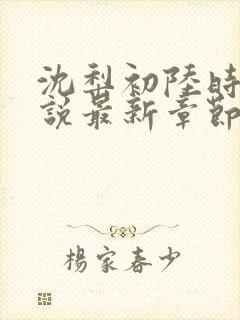 沈梨初陸時
說最新章節
楊家春少